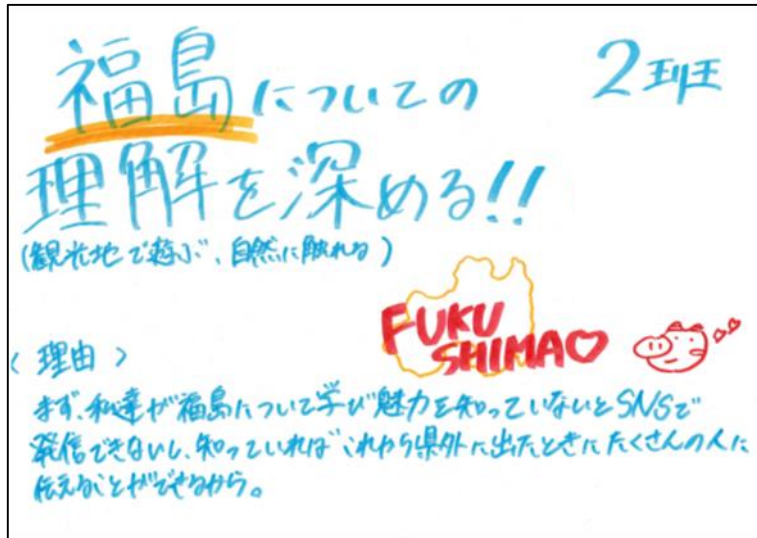 福島についての
2班
理解を深める!!
(観光地で遊ぶ、自然に触れる)
FUKU
SHIMA♡
<理由>
まず、私達が福島について学び魅力を知っていないとSNSで
発信できないし、知っていればこれから県外に出たときにたくさんの人に
伝えることができるから。